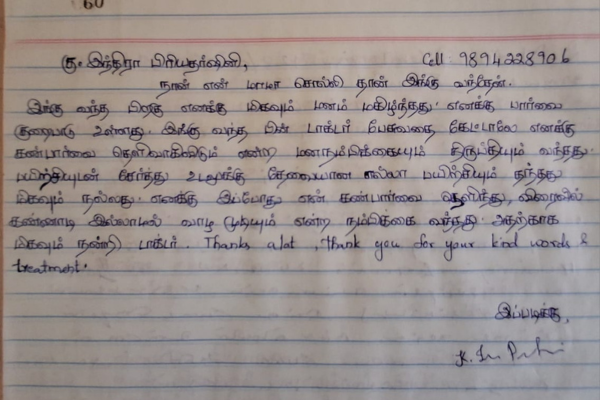 60
கு. இந்திரா பிரியதர்ஷினி, Cell : 9894228906
நான் என் மாமா சொல்லி தான் இங்கு வந்தேன்.
இங்கு வந்த பிறகு எனக்கு மிகவும் மனம் மகிழ்ந்தது. எனக்கு பார்வை
குறைபாடு உள்ளது. இங்கு வந்த பின் டாக்டர் பேசுவதை கேட்டாலே எனக்கு
கண்பார்வை தெளிவாகிவிடும் என்ற மனநம்பிக்கையும் திருப்தியும் வந்தது.
பயிற்சியுடன் சேர்த்து உடலுக்கு தேவையான எல்லா பயிற்சியும் தந்தது
மிகவும் நல்லது. எனக்கு இப்போது என் கண்பார்வை தெளிந்து, விரைவில்
கண்ணாடி இல்லாமல் வாழ முடியும் என்ற நம்பிக்கை வந்தது. அதற்காக
மிகவும் நன்றி டாக்டர். Thanks alot, thank you for your kind words &
treatment.
இப்படிக்கு,